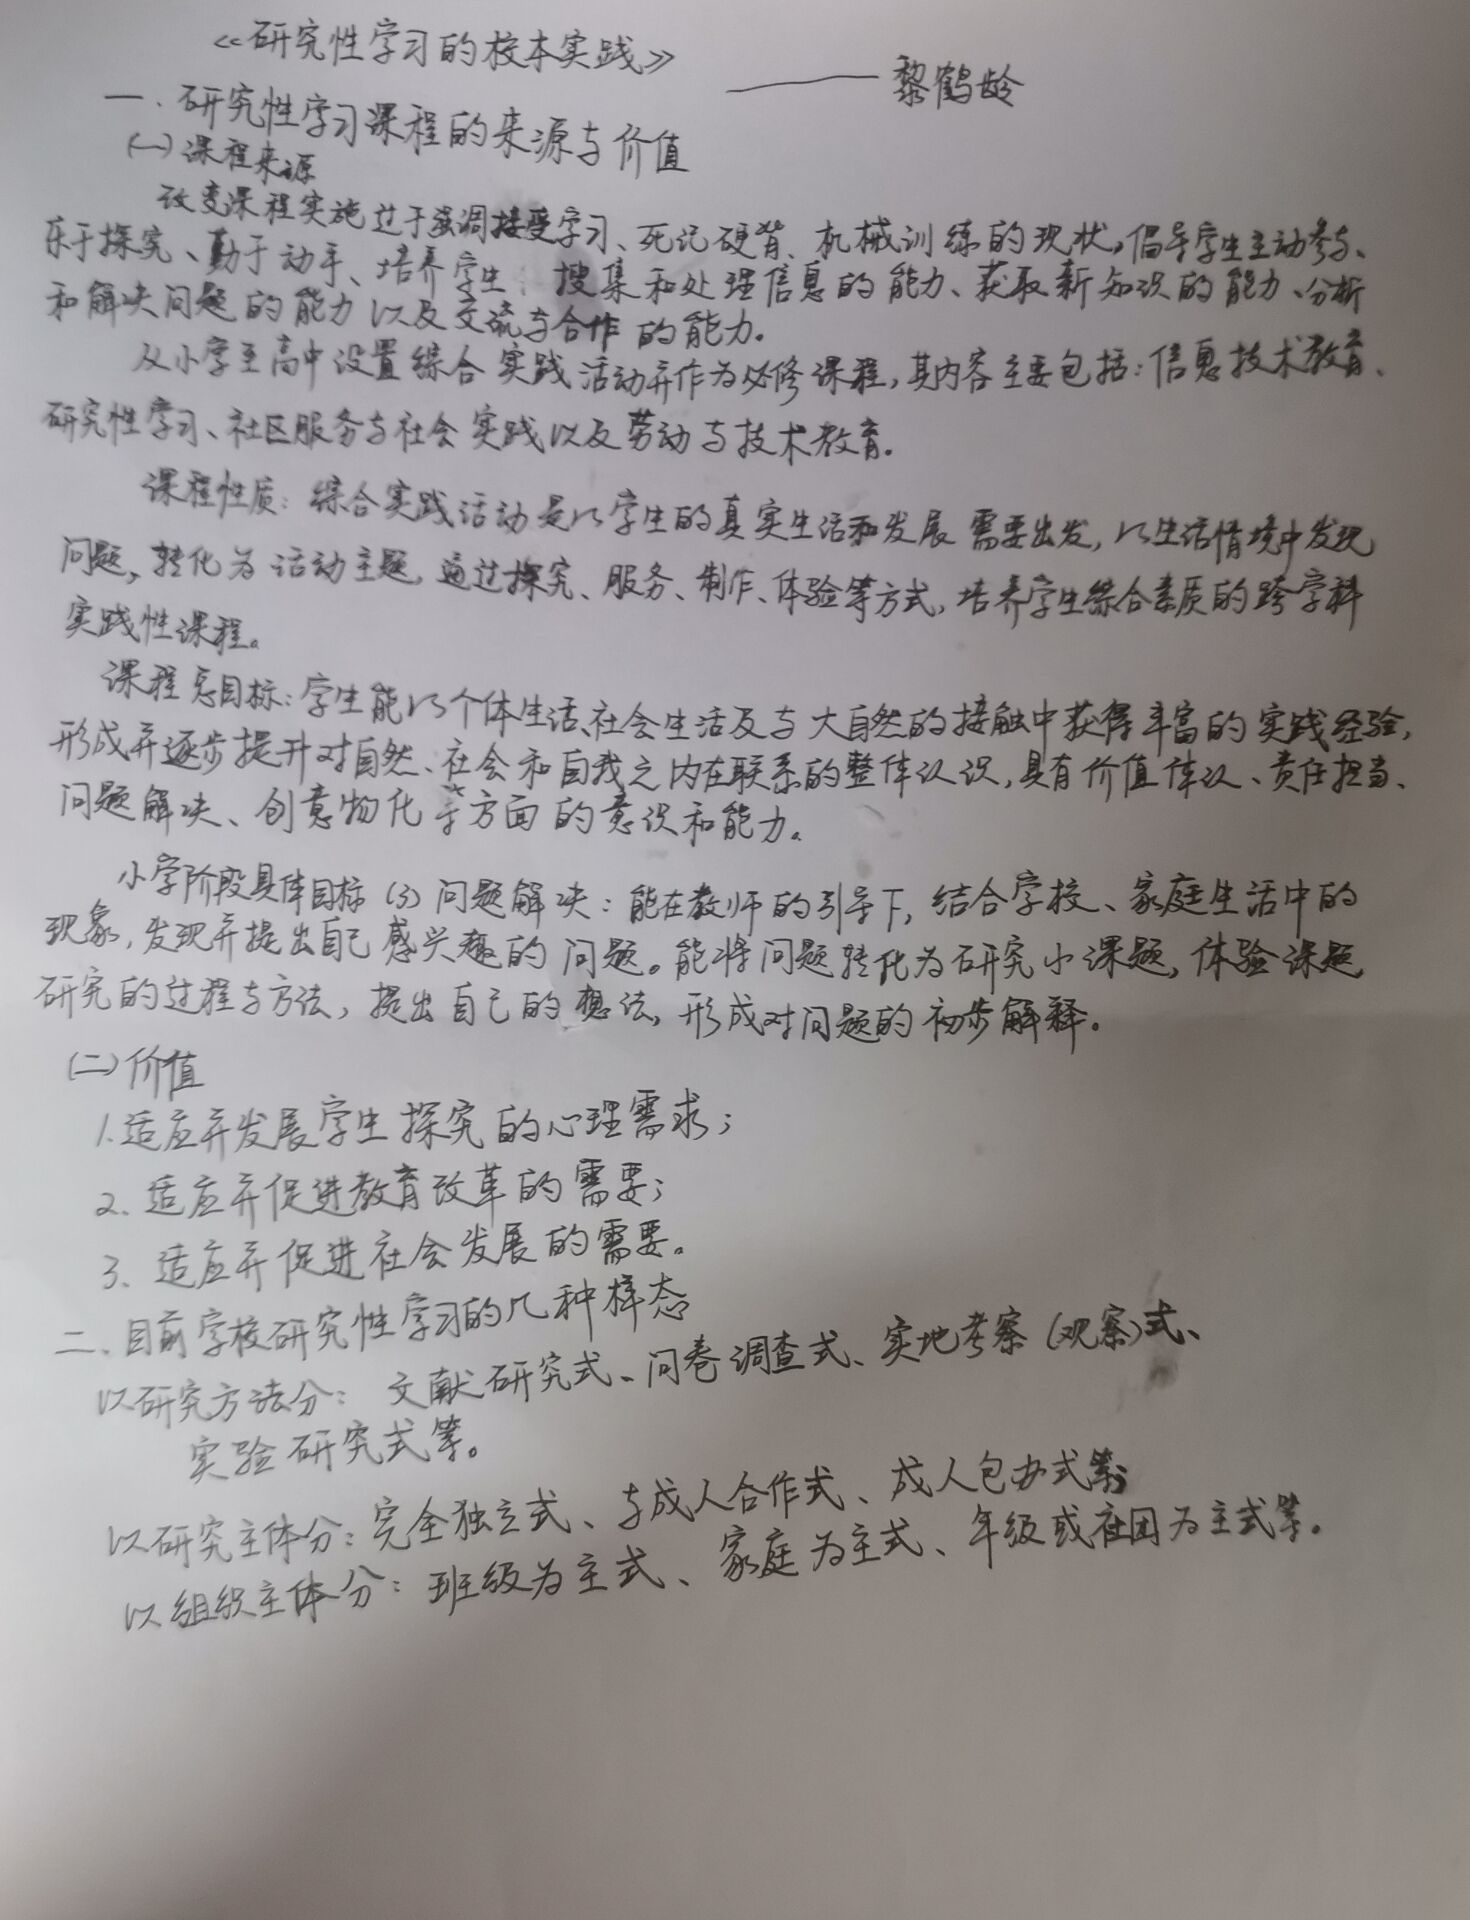 《研究性学习的校本实践》
——黎鹤龄
一、研究性学习课程的来源与价值
(一)课程来源
改变课程实施过于强调接受学习、死记硬背、机械训练的现状,倡导学生主动参与、
乐于探究、勤于动手、培养学生 搜集和处理信息的能力、获取新知识的能力、分析
和解决问题的能力以及交流与合作的能力。
从小学至高中设置综合实践活动并作为必修课程,其内容主要包括:信息技术教育、
研究性学习、社区服务与社会实践以及劳动与技术教育。
课程性质:综合实践活动是从学生的真实生活和发展需要出发,从生活情境中发现
问题,转化为活动主题,通过探究、服务、制作、体验等方式,培养学生综合素质的跨学科
实践性课程。
课程总目标:学生能从个体生活、社会生活及与大自然的接触中获得丰富的实践经验,
形成并逐步提升对自然、社会和自我之内在联系的整体认识,具有价值体认、责任担当、
问题解决、创意物化等方面的意识和能力。
小学阶段具体目标(3)问题解决:能在教师的引导下,结合学校、家庭生活中的
现象,发现并提出自己感兴趣的问题。能将问题转化为研究小课题,体验课题
研究的过程与方法,提出自己的想法,形成对问题的初步解释。
(二)价值
1.适应并发展学生探究的心理需求;
2、适应并促进教育改革的需要;
3、适应并促进社会发展的需要。
二、目前学校研究性学习的几种样态
以研究方法分:文献研究式、问卷调查式、实地考察(观察)式、
实验研究式等。
以研究主体分:完全独立式、与成人合作式、成人包办式等;
以组织主体分:班级为主式、家庭为主式、年级或社团为主式等。